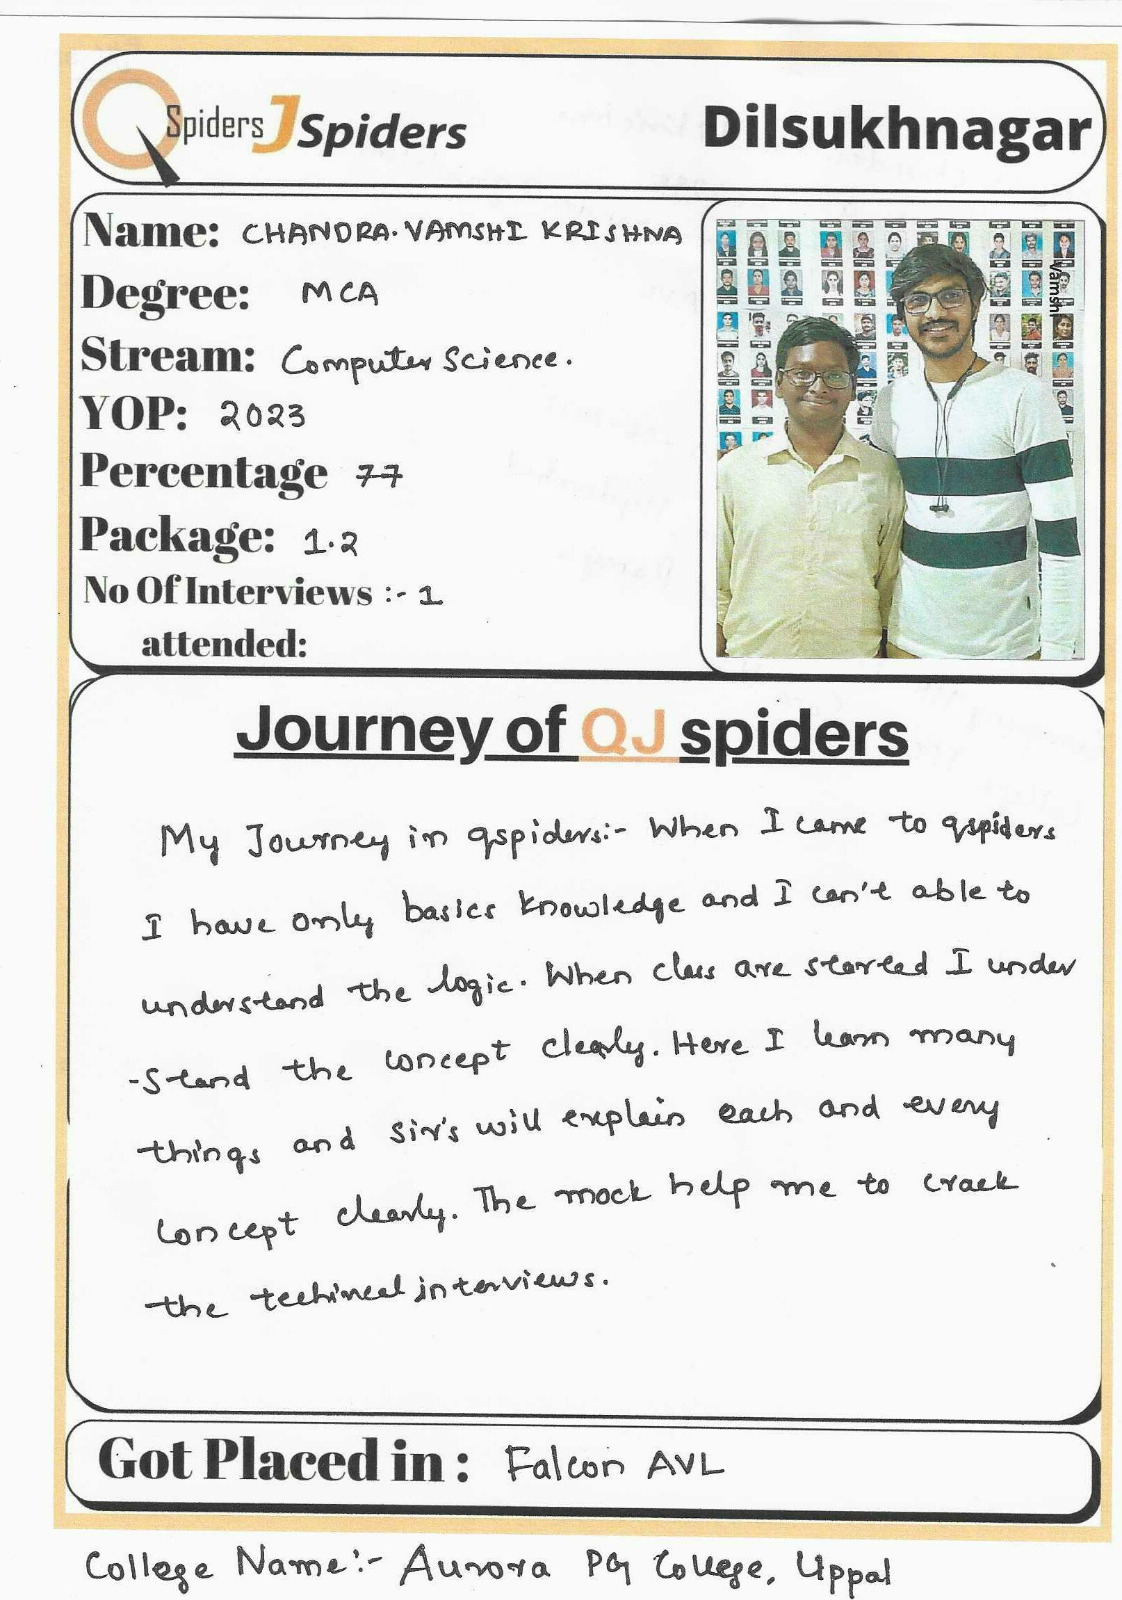 QSpiders JSpiders
Dilsukhnagar
Name: CHANDRA. VAMSHI KRISHNA
Degree: MCA
Stream: Computer Science.
YOP: 2023
Percentage 77
Package: 1.2
No Of Interviews :- 1
attended:
Vamshi
Journey of QJ spiders
My Journey in qspiders:- When I came to qspiders
I have only basics knowledge and I can't able to
understand the logic. When class are started I under
-stand the concept clearly. Here I learn many
things and sir's will explain each and every
concept clearly. The mock help me to crack
the techincal interviews.
Got Placed in : Falcon AVL
College Name:- Aurora PG College, Uppal